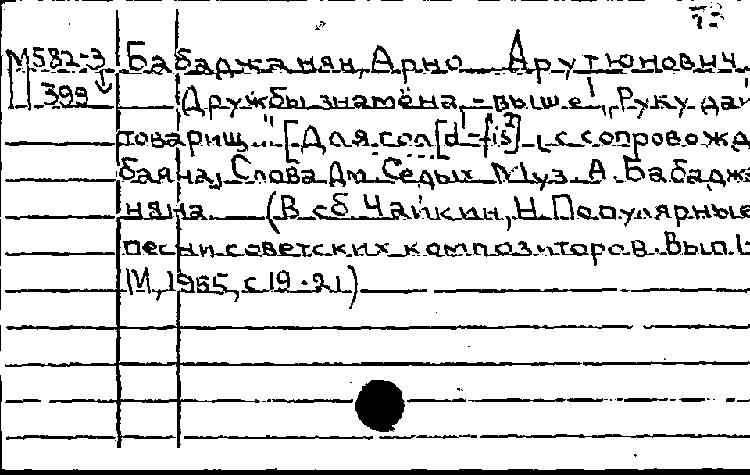 73
М582-3 Бабаджанян, Арно Арутюнович.
399 Дружбы знамёна - выше! "Руку дай
товарищ..." [Для гол[d-fis²] с сопровожд
баяна, Слова Дм. Седых Муз. А. Бабаджа
няна (В сб. Чайкин, Н. Популярные
песни советских композиторов. Вып.
М, 1965, с 19-21)